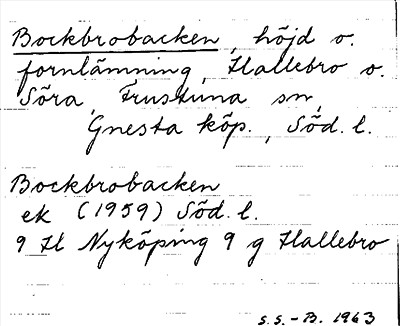 Bockbrobacken, höjd o.
fornlämning, Hallebro o.
Söra, Frustuna sn,
Gnesta köp., Söd. l.
Bockbrobacken
ek (1959) Söd. l.
9 H Nyköping 9 g Hallebro
S.S.-B. 1963